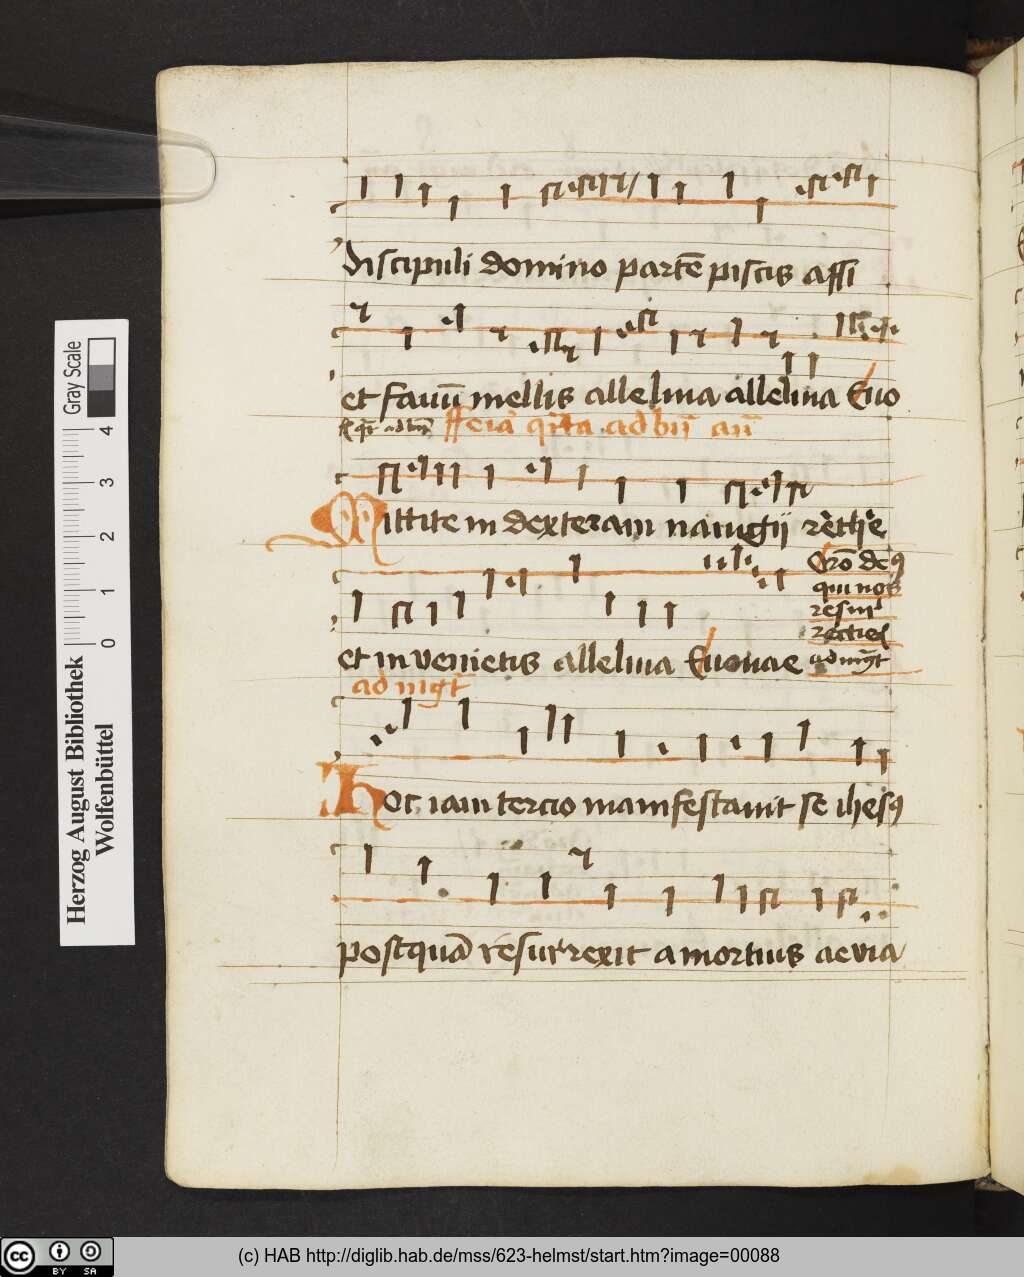 discipuli domino partē piscis assi
et fauū mellis alleluia alleluia Euo
ffeia qrta ad bn̄ an̄
Mittite in dexteram nauigij rethe
et inuenietis alleluia Euouae
Oro deus
qui nos
resur
rectiōe
ad mgt
ad mgt
Hoc iam tercio manifestauit se ihesus
postquā resurrexit a mortuis aeuia
Gray Scale
4
3
2
1
0
Herzog August Bibliothek
Wolfenbüttel
cc BY SA
(c) HAB http://diglib.hab.de/mss/623-helmst/start.htm?image=00088